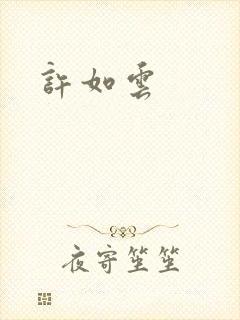 許如雲
夜寄笙笙